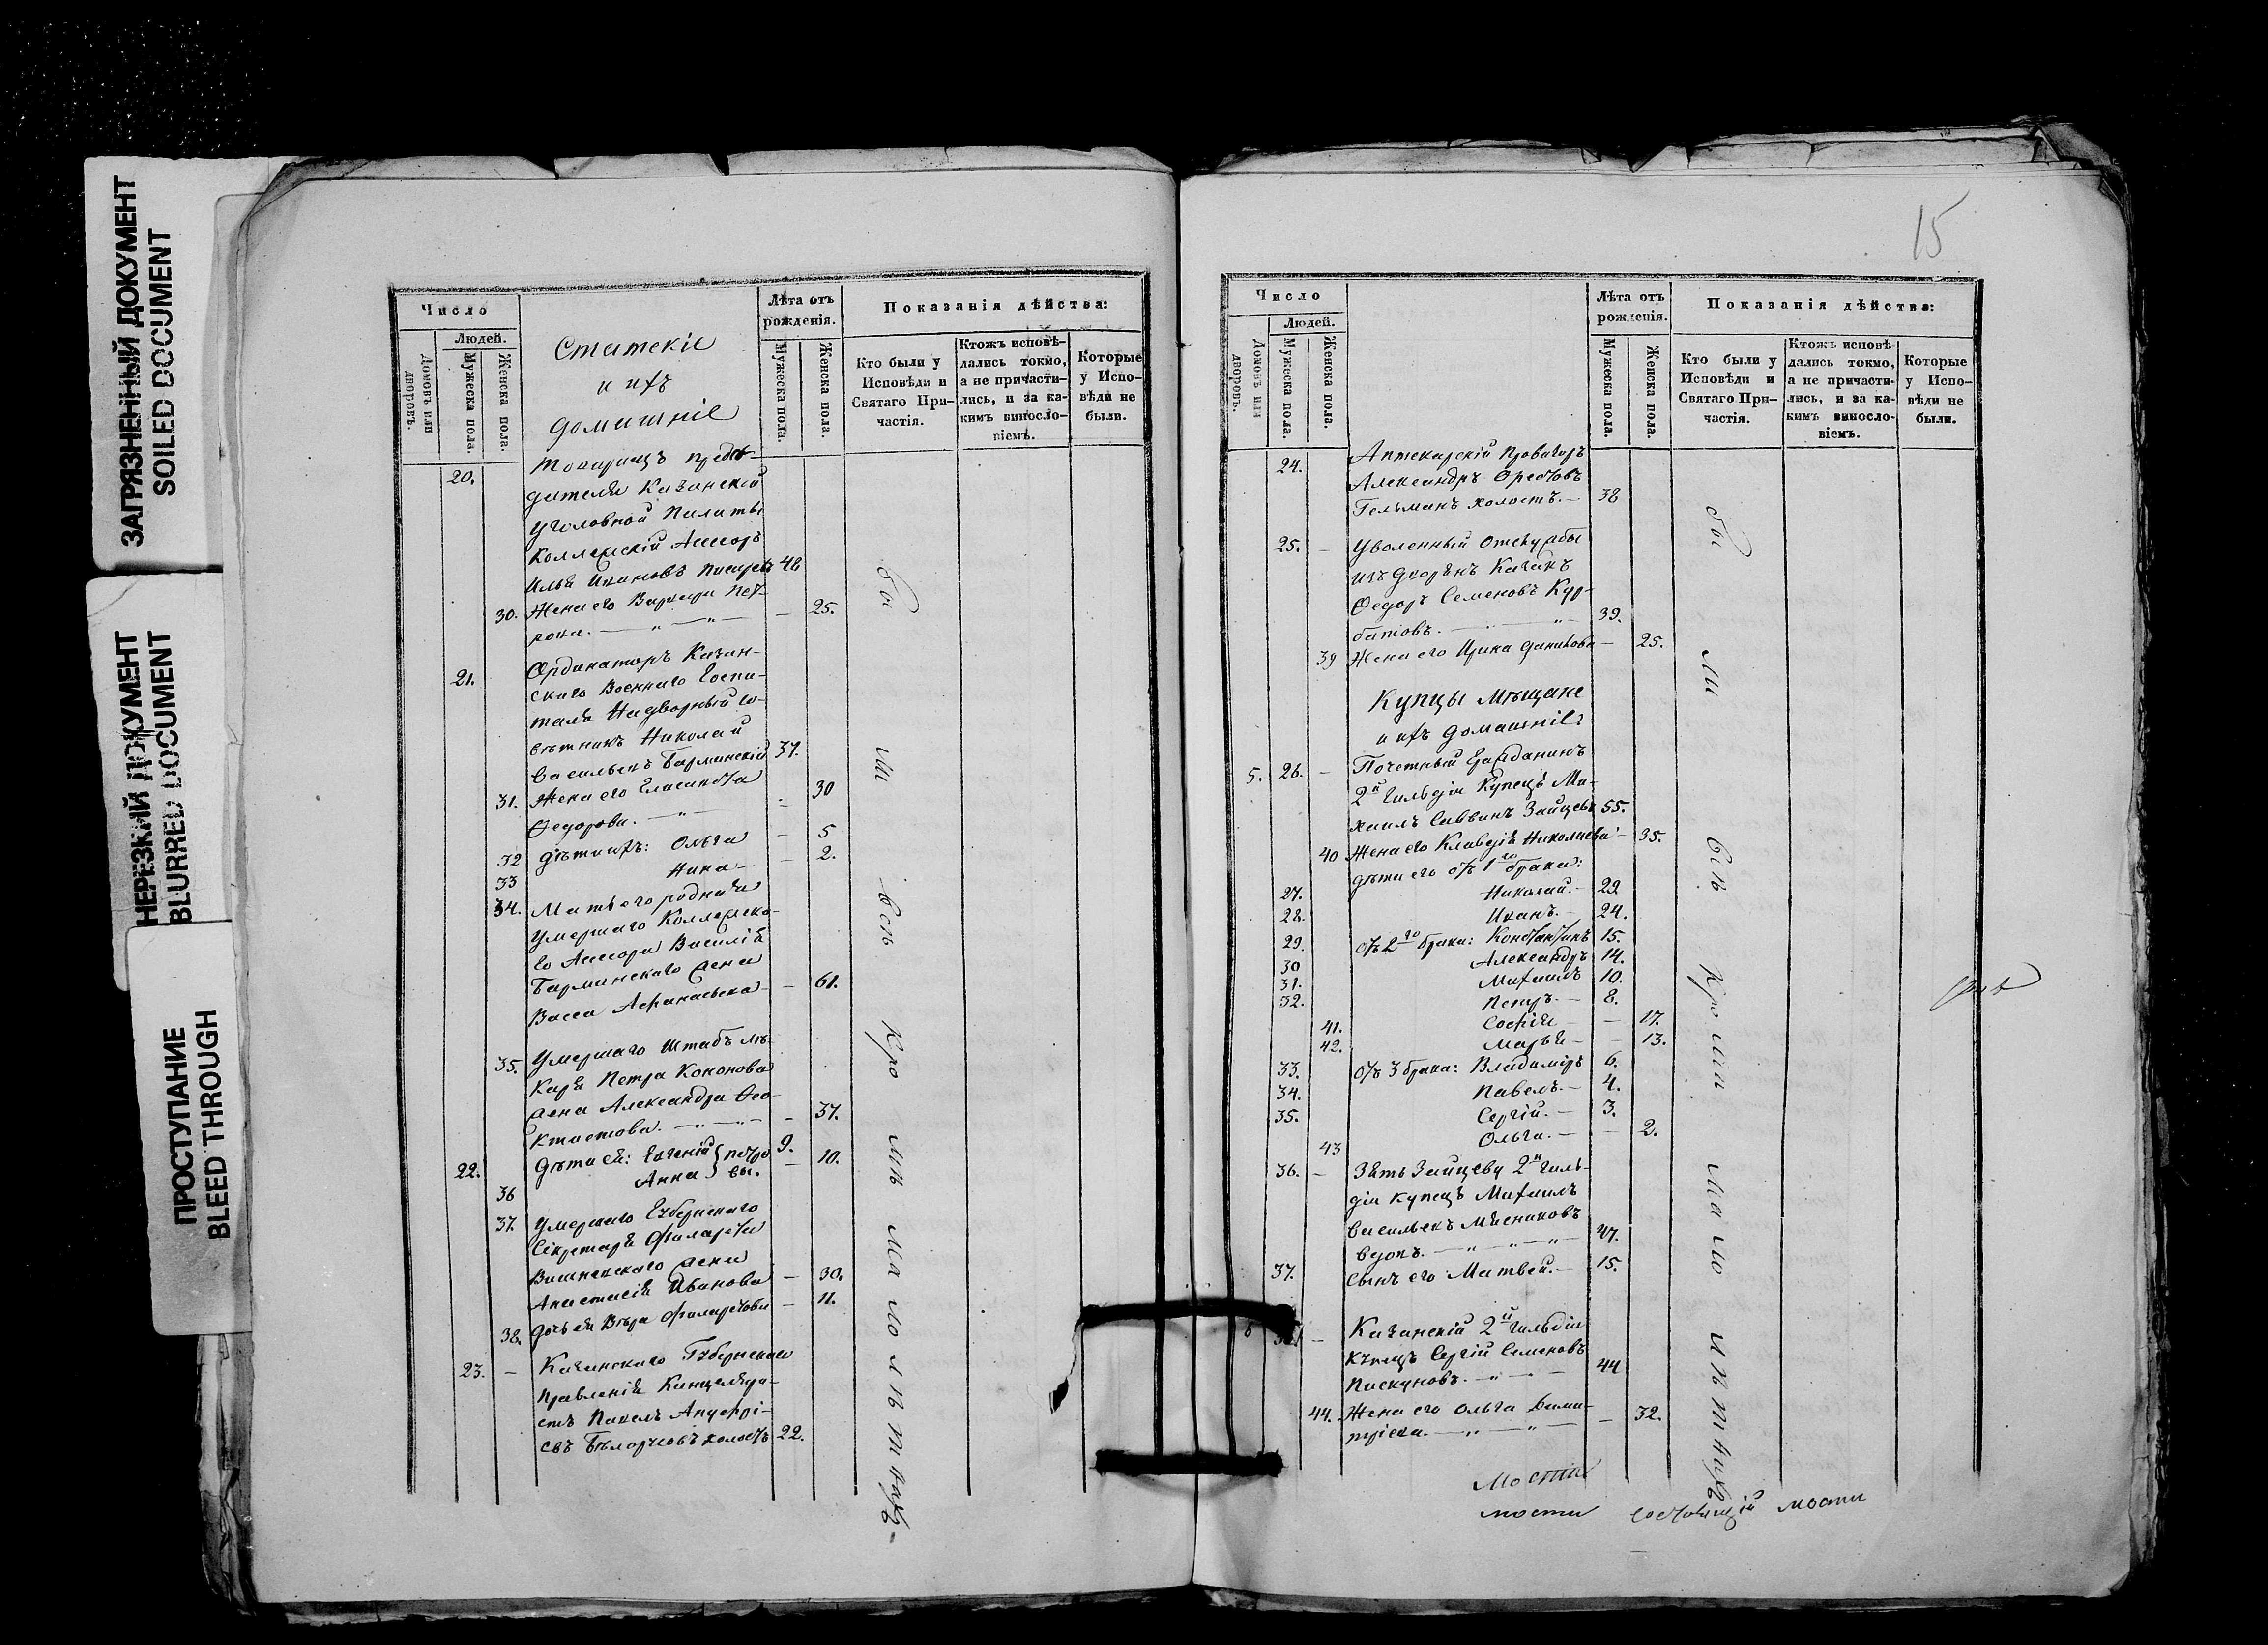 ЗАГРЯЗНЕННЫЙ ДОКУМЕНТ
SOILED DOCUMENT
НЕРЕЗКИЙ ДОКУМЕНТ
BLURRED DOCUMENT
ПРОСТУПАНИЕ
BLEED THROUGH
Число
Людей.
Домовъ или дворовъ.
Мужеска пола.
Женска пола.
Статскіе
и ихъ
домашніе
Лѣта отъ рожденія.
Мужеска пола.
Женска пола.
Показанія дѣйства:
Кто были у Исповѣди и Святаго Причастія.
Ктожъ исповѣдались токмо, а не причастились, и за какимъ винословіемъ.
Которые у Исповѣди не были.
20. Товарищъ Предсѣ-
дателя Казанской
Уголовной Палаты
Коллежскій Ассесоръ
Илья Ивановъ Писаревъ 48
30. Жена его Варвара Пет-
рова. — „ — „ — — 25.
21. Ординаторъ Казан-
скаго Военнаго Госпи-
таля Надворный Со-
вѣтникъ Николай
Васильевъ Барминскій 37.
31. Жена его Елисавета
Федорова. — „ — — 30
32 Дѣти ихъ: Ольга — 5
33 Нина — — 2.
34. Мать его родная
Умершаго Коллежска-
го Ассесора Василія
Барминскаго жена
Васса Афанасьева — 61.
35. Умершаго Штабъ лѣ-
каря Петра Кононова
жена Александра Фео-
ктистова. — „ — „ — — 37.
22. Дѣти ея: Евгеній } Петро 9.
36 Анна } вы. — 10.
37. Умершаго Губернскаго
Секретаря Филарета
Вишневскаго жена
Анастасія Иванова — 30.
38. Дочь ея Вѣра Филаретова — 11.
23. — Казанскаго Губернскаго
Правленія Канцеляри-
стъ Павелъ Ануфрі-
евъ холостъ 22.
бы ли всѣ
15
Число
Людей.
Домовъ или дворовъ.
Мужеска пола.
Женска пола.
Лѣта отъ рожденія.
Мужеска пола.
Женска пола.
Показанія дѣйства:
Кто были у Исповѣди и Святаго Причастія.
Ктожъ исповѣдались токмо, а не причастились, и за какимъ винословіемъ.
Которые у Исповѣди не были.
24. Аптекарскій Провизоръ
Александръ Орестовъ
Гельманъ холостъ. — 38
25. — Уволенный отслужбы
изъ дворянъ Казакъ
Федоръ Семеновъ Кур-
батовъ. — „ — 39.
39 Жена его Ирина Данилова — 25.
Купцы Мѣщане
и ихъ домашніе
5. 26. — Почетный Гражданинъ
2й Гильдіи Купецъ Ми-
хаилъ Саввинъ Зайцевъ 55.
40 Жена его Клавдія Николаева — 35.
Дѣти его отъ 1го брака:
27. Николай. — 29.
28. Иванъ. — 24.
29. отъ 2го брака: Константинъ 15.
30 Александръ 14.
31. Михаилъ 10.
32. Петръ. — 8.
41. Софія — — 17.
42. Марья — — 13.
33. отъ 3 брака: Владиміръ 6.
34. Павелъ. — 4.
35. Сергій. — 3.
43 Ольга. — — 2.
36. — Зять Зайцеву 2й Гиль-
діи Купецъ Михаилъ
Васильевъ Мясниковъ
вдовъ. — „ — „ — „ — 47.
37. Сынъ его Матвей. — 15.
6 38. — Казанскій 2й Гильдіи
Купецъ Сергій Семеновъ
Пискуновъ. — „ — — 44
44. Жена его Ольга Дими-
тріева. — „ — „ — — 32.
бы ли всѣ
мости
мости мости